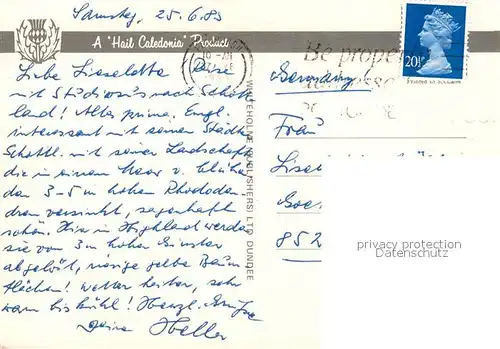 Samstag, 25.6.83
A "Hail Caledonia" Product
Liebe Lieselotte Reise
mit Studiosus nach Schott-
land! Alles prima. Engl.
interessant mit seinen Städten
Schottl. mit seiner Landschaft
die in einem Meer v. blühen
den 3-5 m hohen Rhododen
dren versinkt, sagenhaft
schön. Hier in Highland werden
sie von 3 m hohen Ginster
abgelöst, riesige gelbe Baum
flächen! Wetter heiter, sehr
warm bis kühl! Herzl.
Deine
WHITEHOLME (PUBLISHERS) LTD DUNDEE
Be properly
20½P
Germany
Frau
Liese
852
privacy protection
Datenschutz